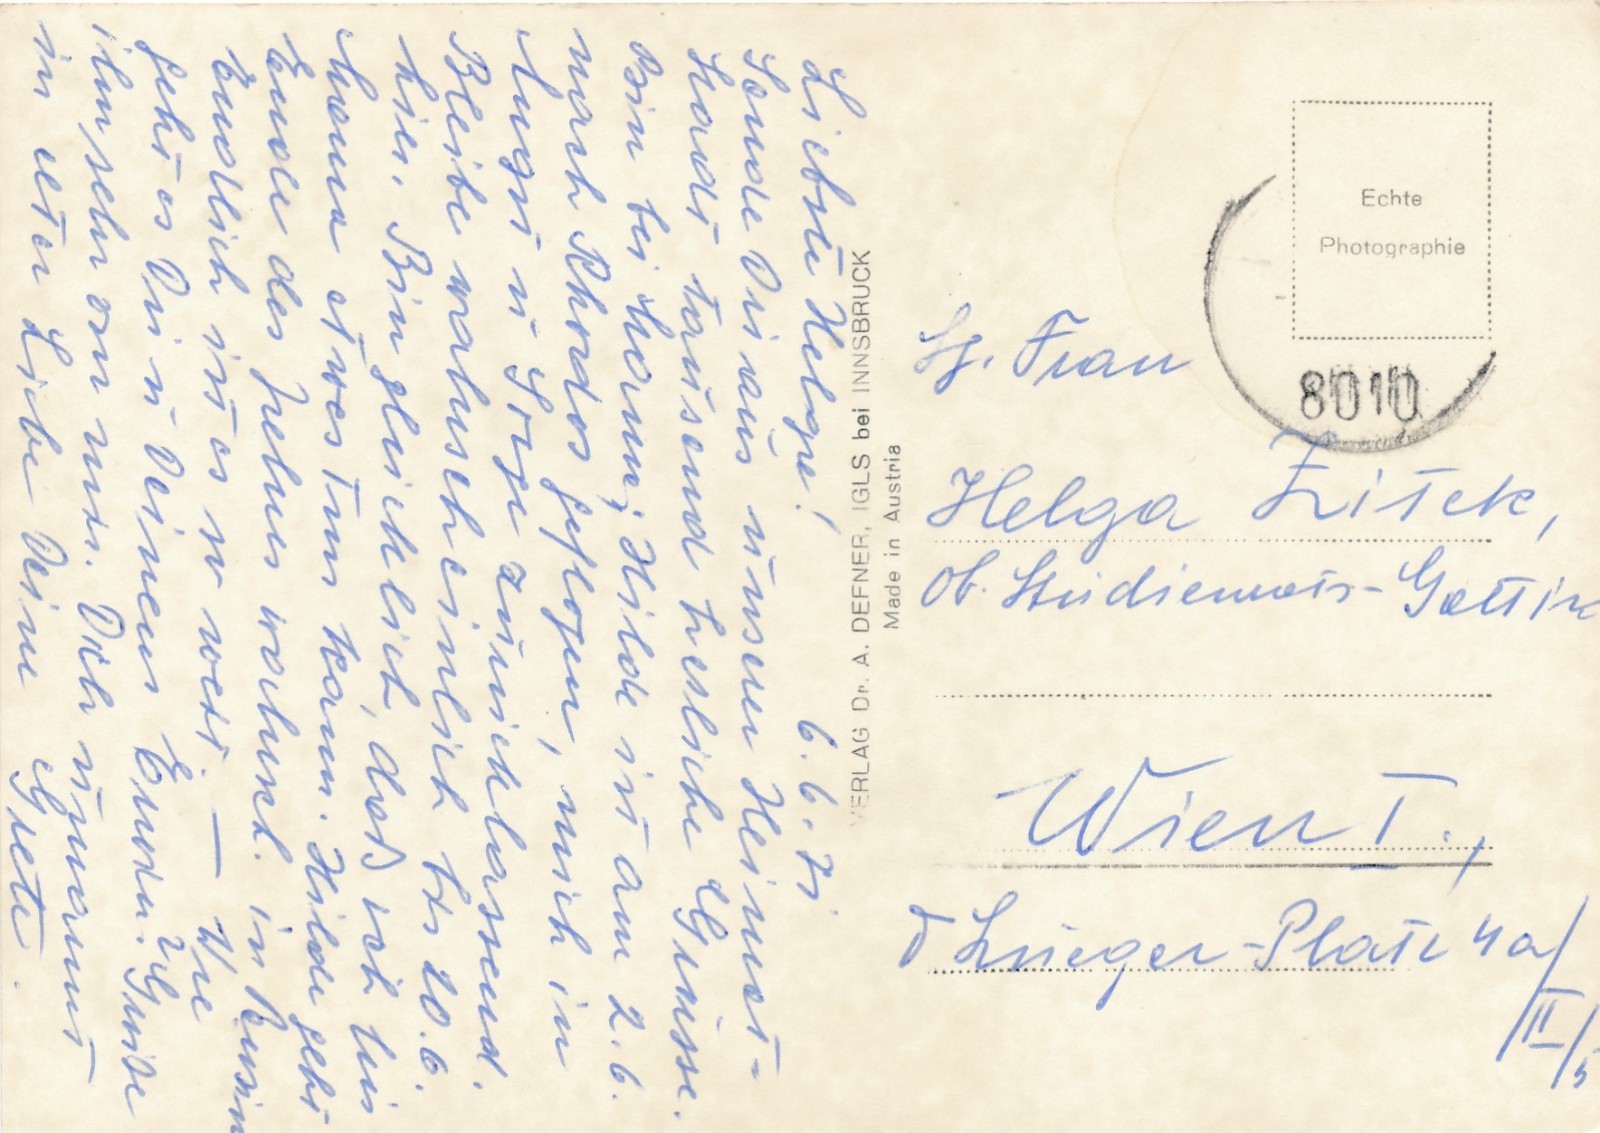 6.6.71
Liebste Helga!
Sende Dir aus unserer Heimat-
Stadt tausend herzliche Grüsse.
Bin bei Mama, Hilde ist am 2.6.
nach Rhodos geflogen, mich in
Angst u Sorge zurücklassend.
Bleibe wahrscheinlich bis 20.6.
hier. Bin glücklich, daß ich für
Mama etwas tun kann. Hilde geht
Ende des Jahres wahrsch. in Pension
Endlich ist es so weit. — Wie
geht es Dir u Deinen Buben? Grüße
ihn sehr von mir. Dich umarmt
in alter Liebe Deine Grete.
VERLAG Dr. A. DEFNER, IGLS bei INNSBRUCK
Made in Austria
Echte
Photographie
8010
Frau
Helga Zitek,
Ob. Studienrats-Gattin
Wien I.,
Lueger-Platz 4a/
II/5